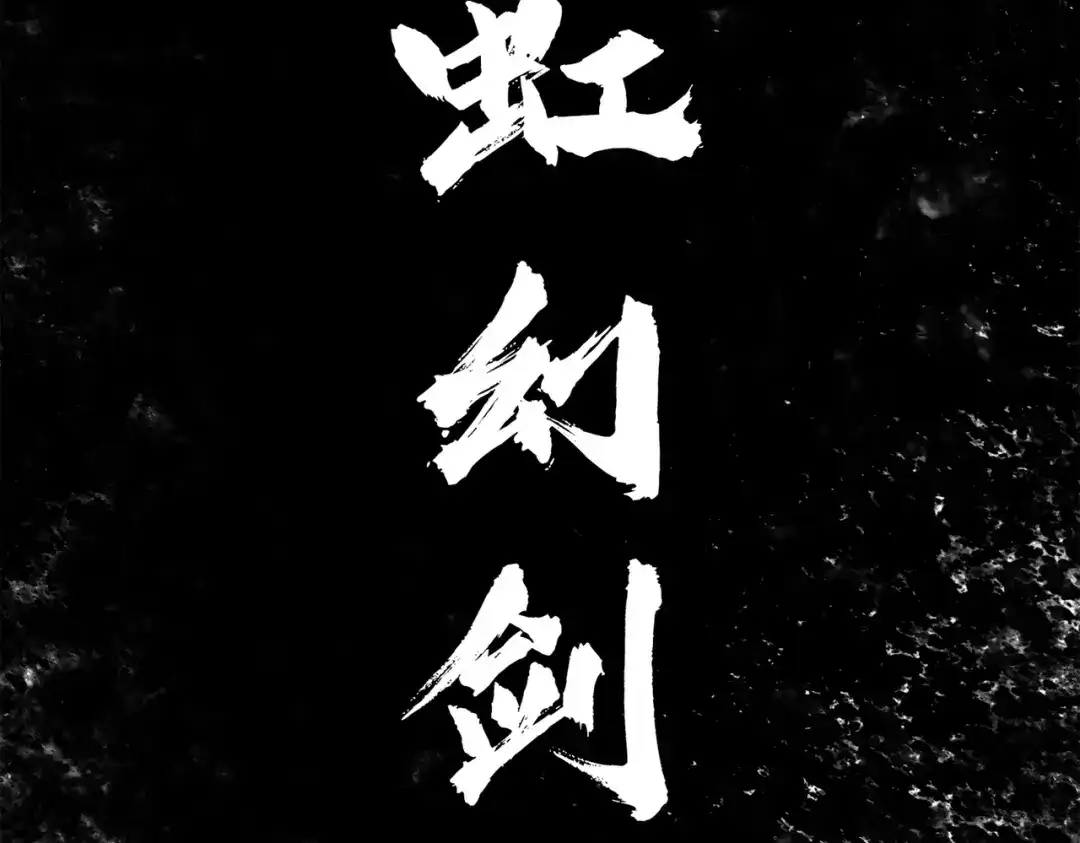 虹幻剑